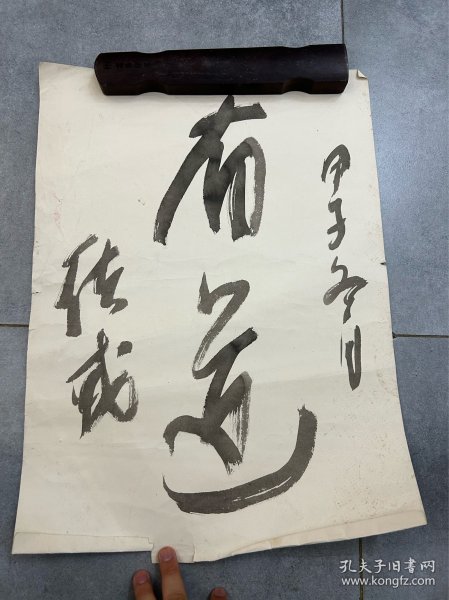 甲子冬日
有道
孔夫子旧书网
www.kongfz.com